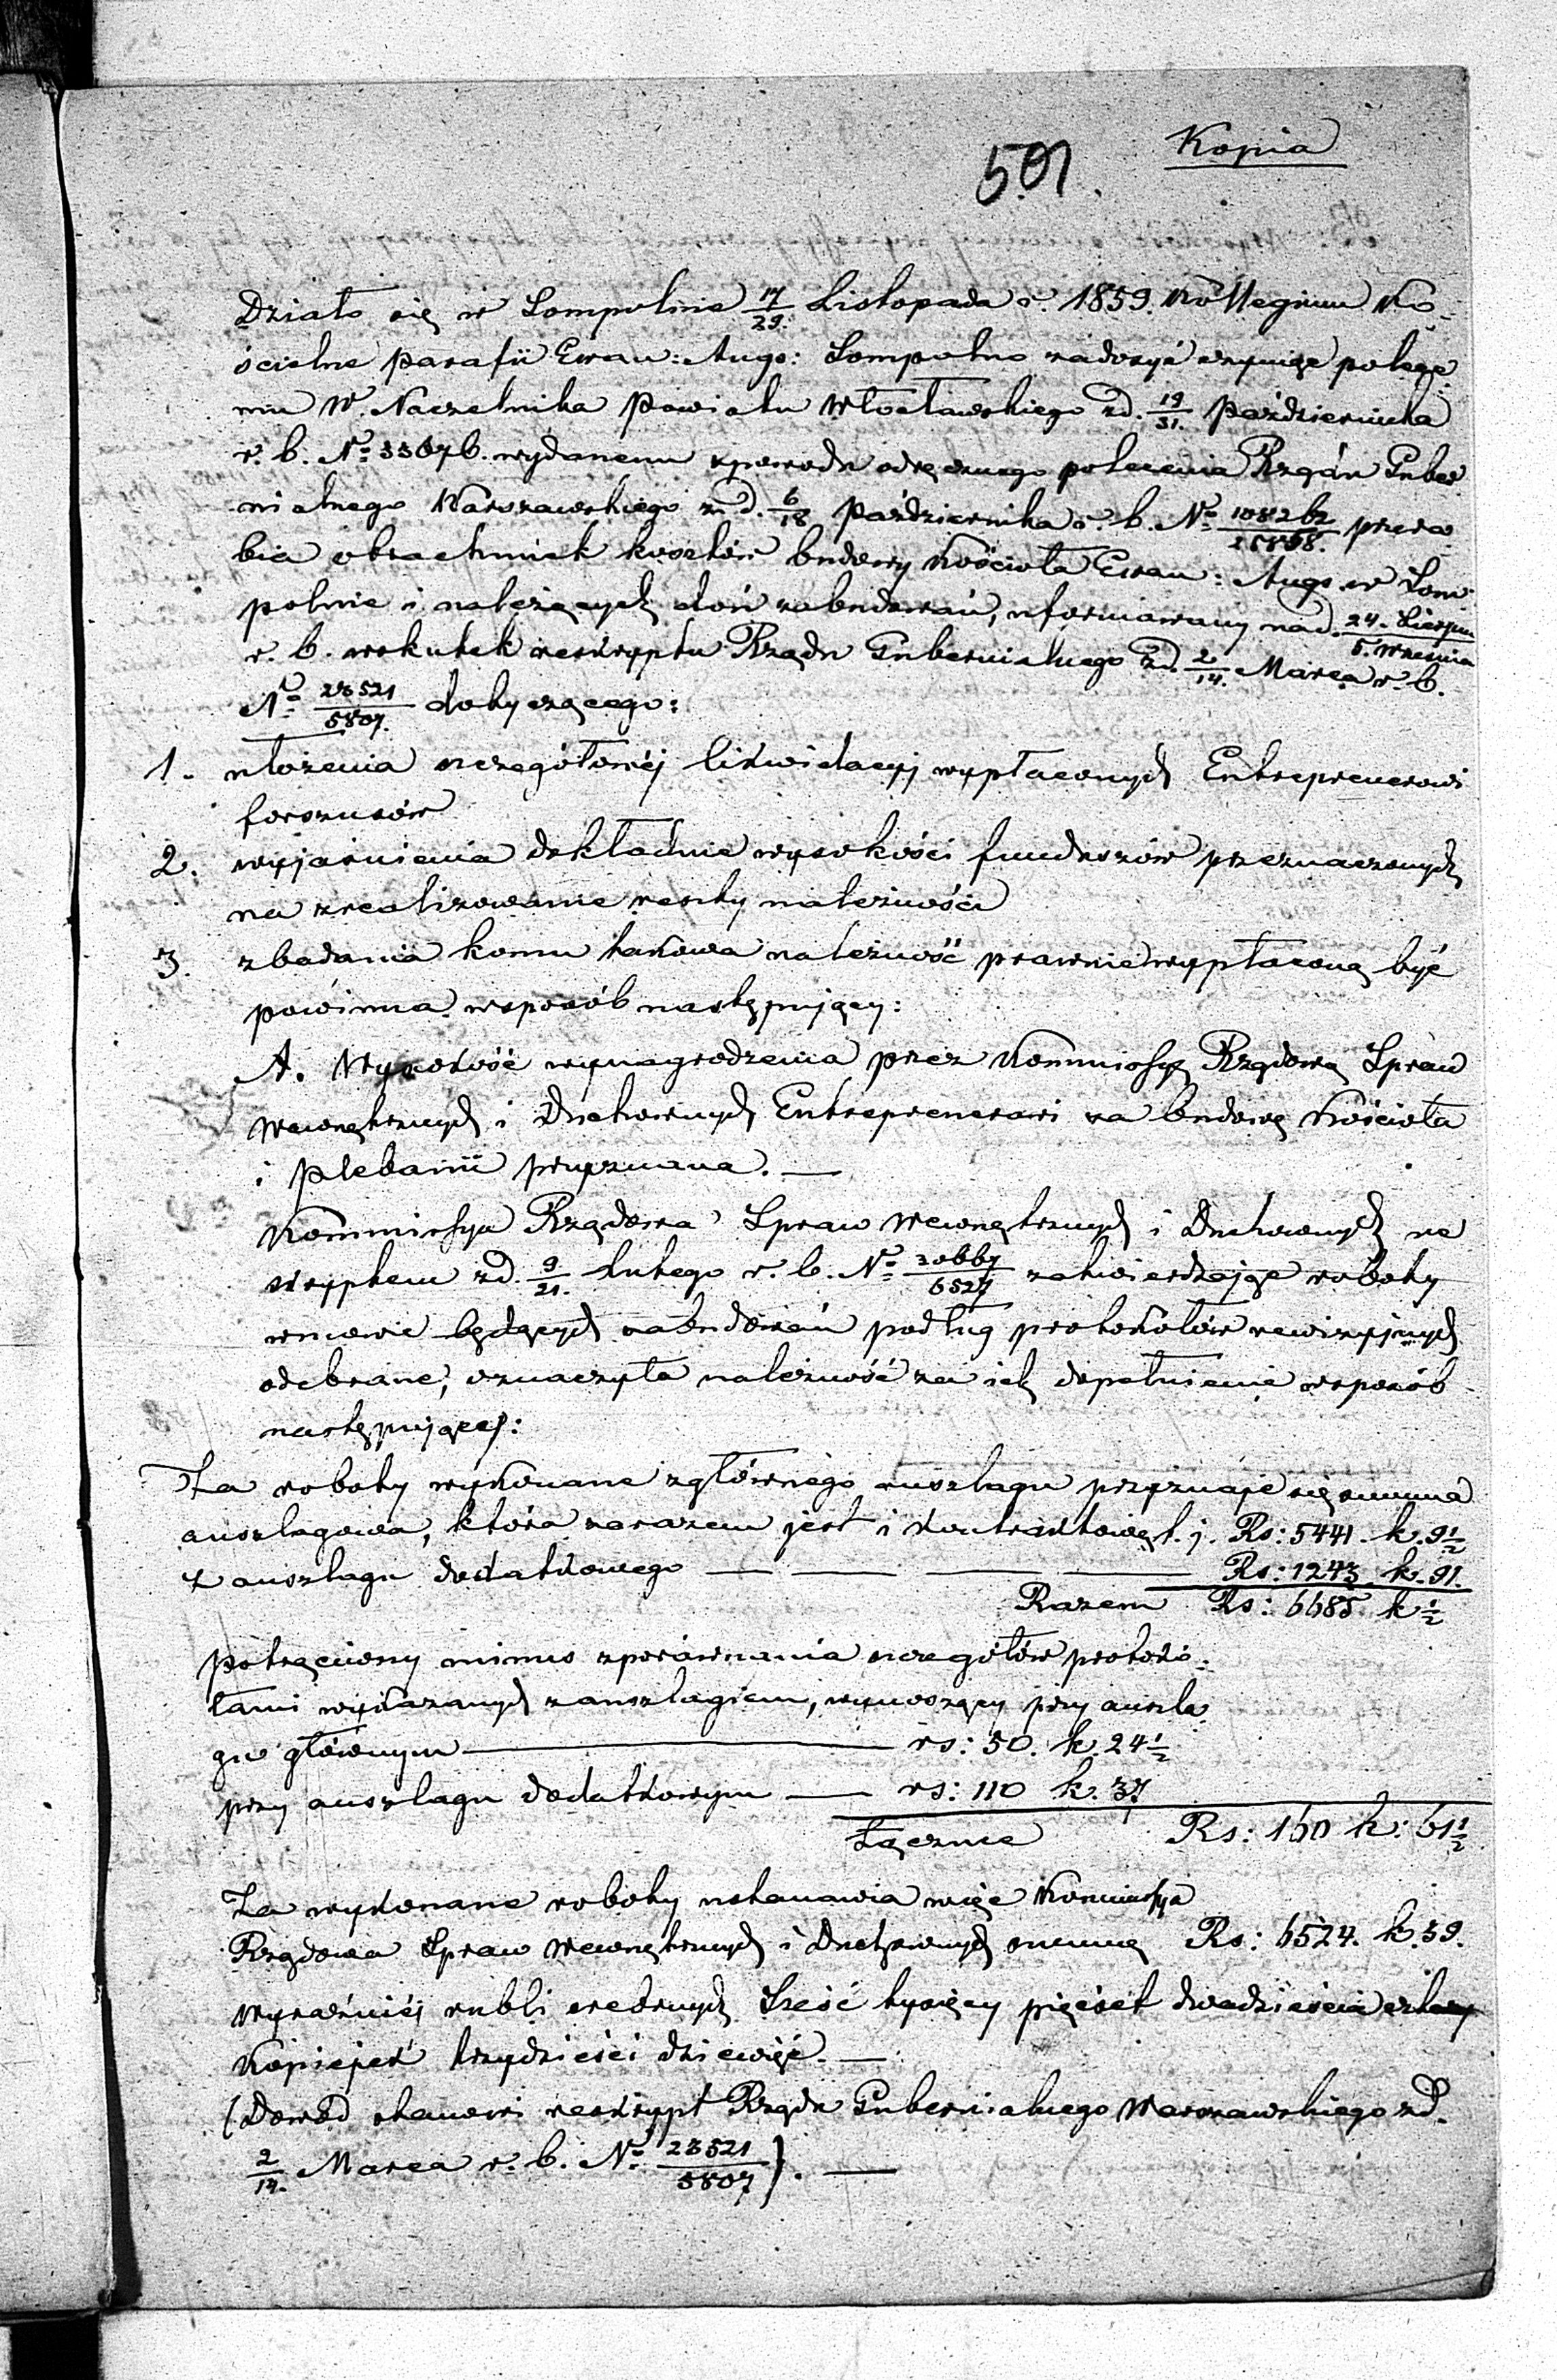 Kopia
501.
Działo się w Sompolnie 17/29. Listopada r. 1859. Kollegium Ko-
ścielne parafii Ewan: Augs: Sompolno zadosyć czyniąc polece-
niu W. Naczelnika Powiatu Włocławskiego z d. 19/31. Października
r. b. No 33676. wydanemu z powodu odręcznego polecenia Rządu Guber-
nialnego Warszawskiego z d. 6/18 Października r. b. No 108262/25868. przera-
bia obrachunek kosztów budowy Kościoła Ewan: Augs. w Som-
polnie i należących doń zabudowań, uformowany na d. 24. Sierpnia/5. Września
r. b. wskutek reskryptu Rządu Gubernialnego z d. 2/14. Marca r. b.
No 23521/5807. dotyczącego:
1. ułożenia szczegółowéj likwidacyj wypłaconych Entreprenerowi
forszusów
2. wyjaśnienia dokładnie wysokości funduszów przeznaczonych
na zrealizowanie reszty należności
3. zbadania komu takowa należność prawnie wypłaconą być
powinna w sposób następujący:
A. Wysokość wynagrodzenia przez Kommissyą Rządową Spraw
Wewnętrznych i Duchownych Entreprenerowi za budowę Kościoła
i plebanii przyznana. —
Kommissya Rządowa Spraw Wewnętrznych i Duchownych re
skryptem z d. 9/21. Lutego r. b. No 20667/6527 zatwierdzając roboty
w mowie będących zabudowań podług protokołów rewizyjnych
odebrane, oznaczyła należność za ich dopełnienie w sposób
następujący:
Za roboty wykonane z głównego anszlagu przyznaje się summa
anszlagowa, która zarazem jest i kontraktową t. j. Rs: 5441. k. 9½
z anszlagu dodatkowego — — — — Rs: 1243. k. 91.
Razem Rs: 6685. k ½
potrącony minus z porównania szczegółów protokó-
łami wykazanych z anszlagiem, wynoszący przy anszla
gu głównym — rs: 50. k. 24½
przy anszlagu dodatkowym — rs: 110 k. 37
Łącznie Rs: 160 k: 61½
Za wykonane roboty ustanawia więc Kommissya
Rządowa Spraw Wewnętrznych i Duchownych summę Rs: 6524. k. 39.
wyraźniéj rubli srebrnych Sześć tysięcy pięćset dwadzieścia cztery
Kopiejek trzydzieści dziewięć. —
(Dowód stanowi reskrypt Rządu Gubernialnego Warszawskiego z d.
2/14. Marca r. b. No 23521/5807). —